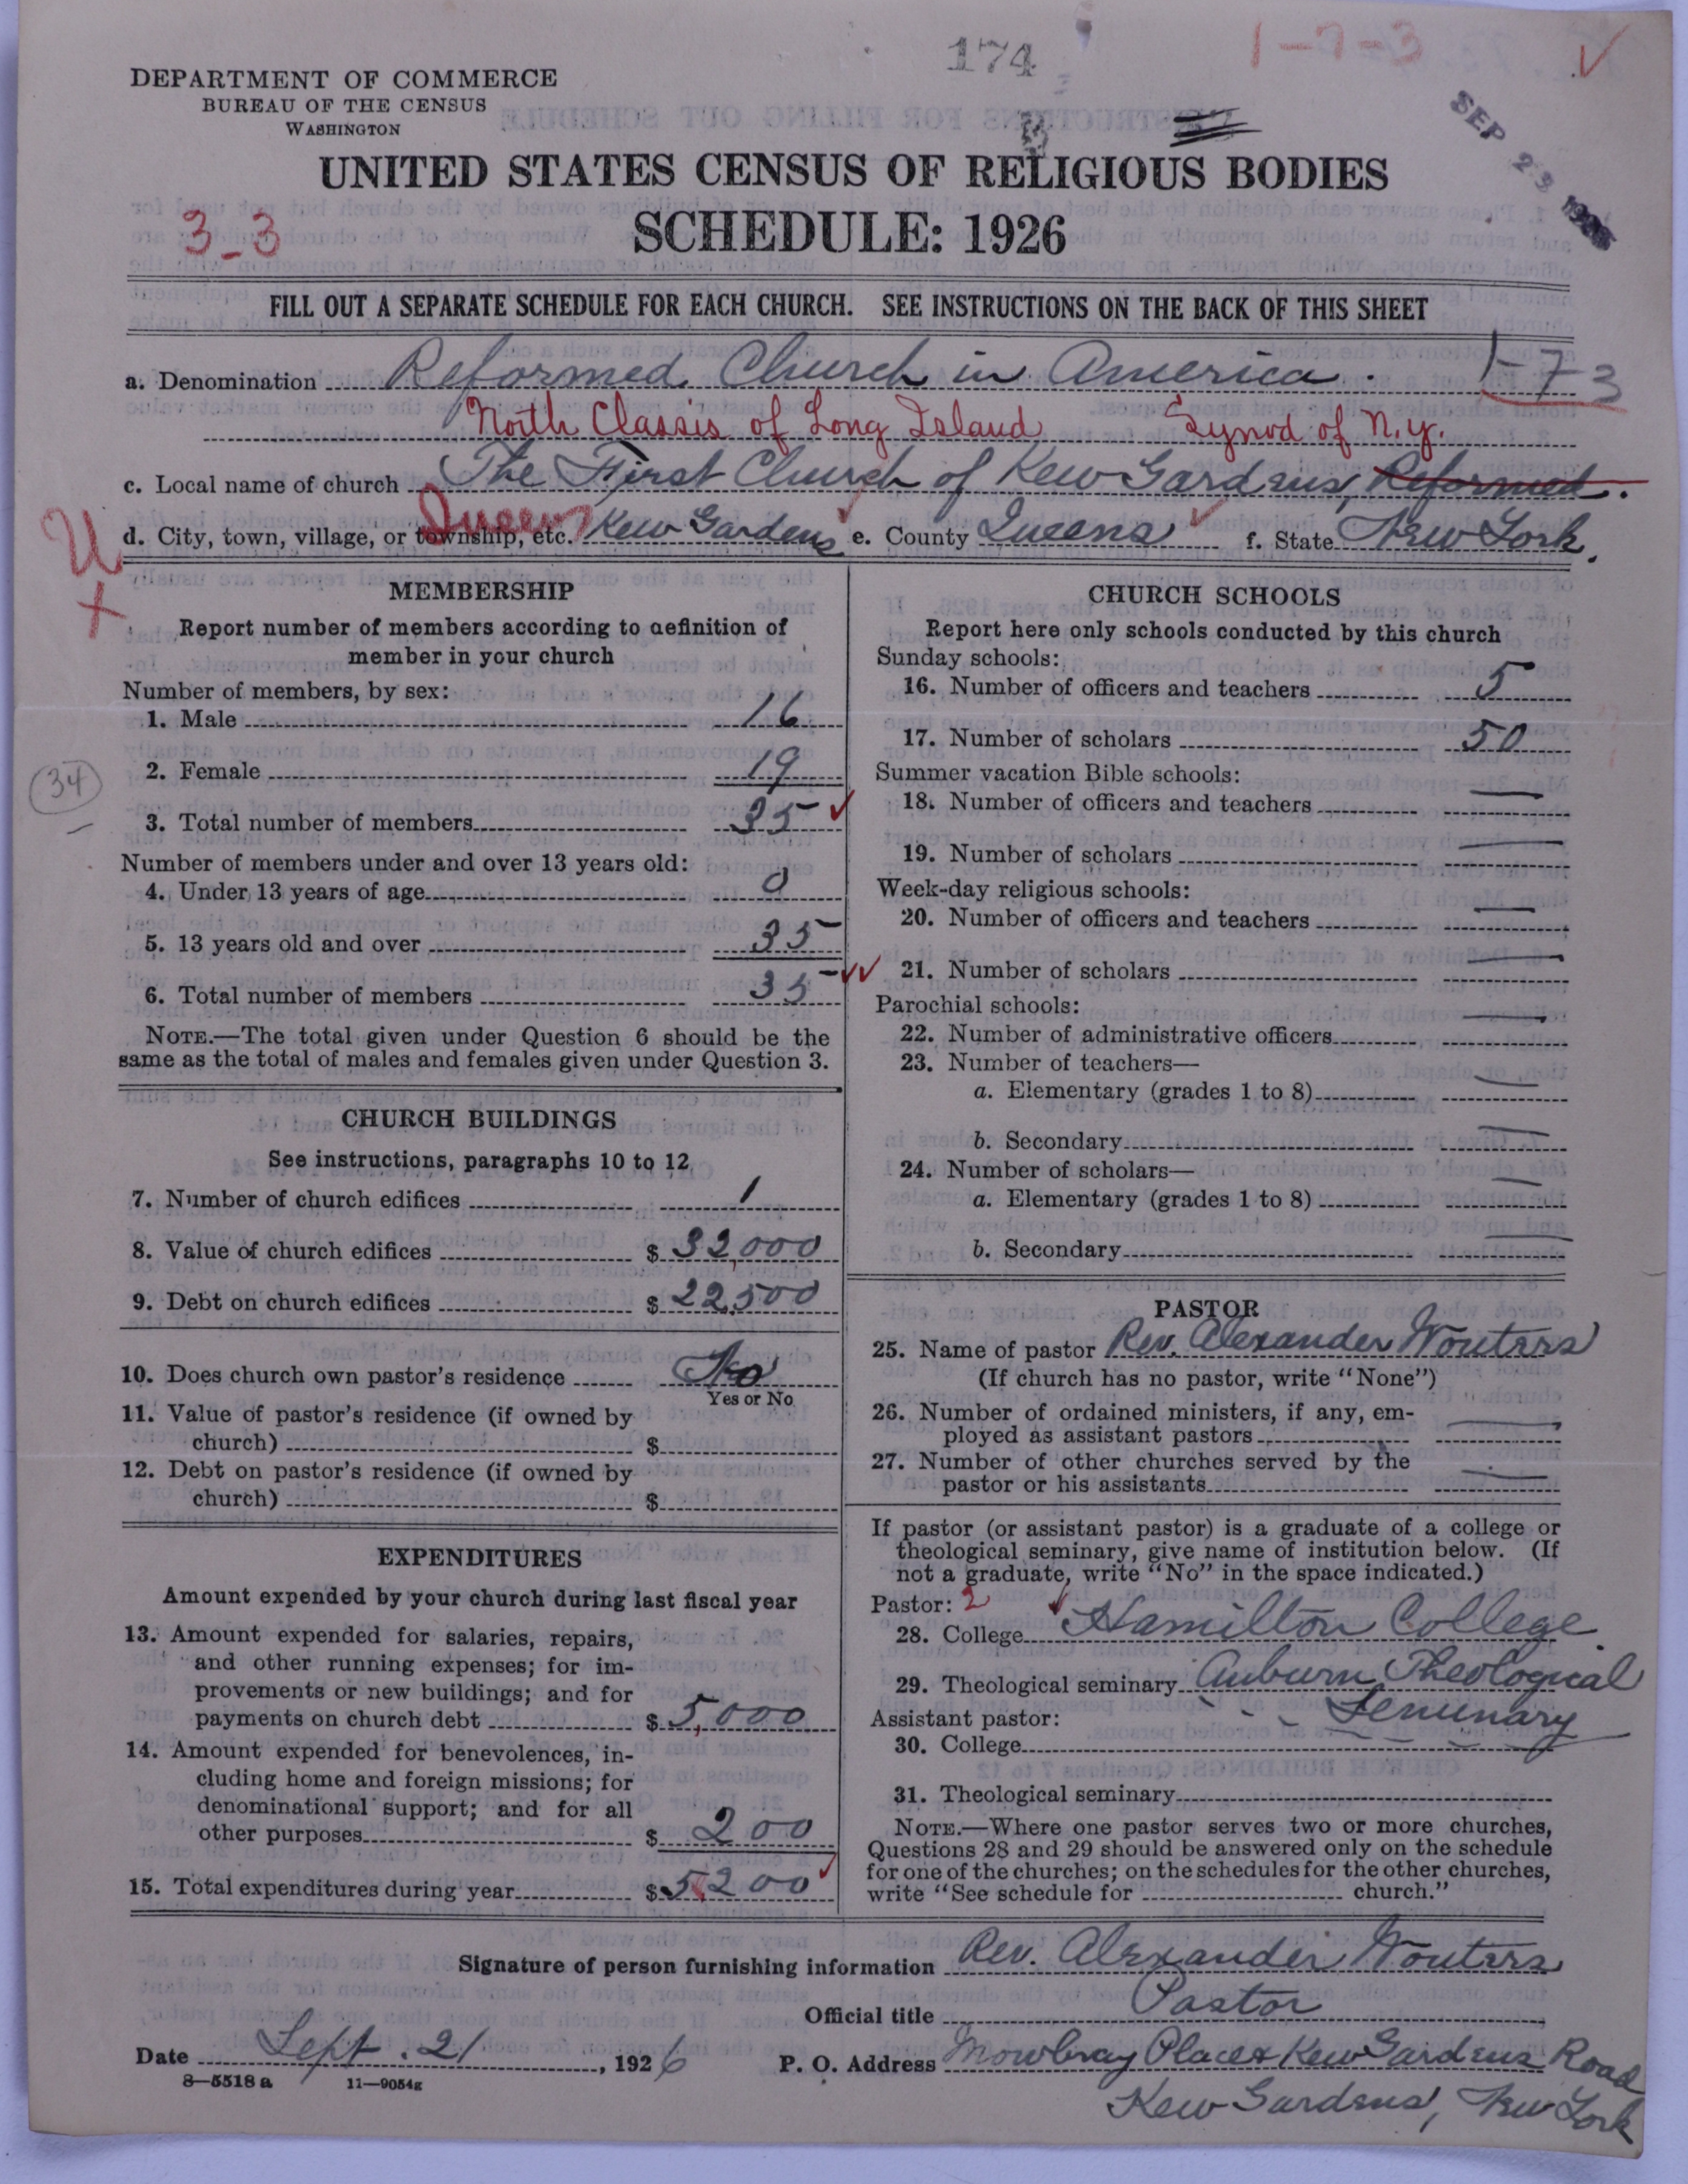 174
1-7-3
DEPARTMENT OF COMMERCE
BUREAU OF THE CENSUS
WASHINGTON
SEP 23 1926
UNITED STATES CENSUS OF RELIGIOUS BODIES
3-3
SCHEDULE: 1926
FILL OUT A SEPARATE SCHEDULE FOR EACH CHURCH. SEE INSTRUCTIONS ON THE BACK OF THIS SHEET
a. Denomination Reformed Church in America. 1-73
North Classis of Long Island Synod of N.Y.
c. Local name of church The First Church of Kew Gardens, Reformed.
Queens
d. City, town, village, or township, etc. Kew Gardens e. County Queens f. State New York.
U
X
MEMBERSHIP
Report number of members according to definition of
member in your church
Number of members, by sex:
1. Male 16
2. Female 19
34
3. Total number of members 35
Number of members under and over 13 years old:
4. Under 13 years of age 0
5. 13 years old and over 35
6. Total number of members 35
NOTE.—The total given under Question 6 should be the
same as the total of males and females given under Question 3.
CHURCH BUILDINGS
See instructions, paragraphs 10 to 12
7. Number of church edifices 1
8. Value of church edifices $ 32,000
9. Debt on church edifices $ 22,500
10. Does church own pastor's residence No
Yes or No
11. Value of pastor's residence (if owned by
church) $
12. Debt on pastor's residence (if owned by
church) $
EXPENDITURES
Amount expended by your church during last fiscal year
13. Amount expended for salaries, repairs,
and other running expenses; for im-
provements or new buildings; and for
payments on church debt $ 5,000
14. Amount expended for benevolences, in-
cluding home and foreign missions; for
denominational support; and for all
other purposes $ 200
15. Total expenditures during year $ 5,200
CHURCH SCHOOLS
Report here only schools conducted by this church
Sunday schools:
16. Number of officers and teachers 5
17. Number of scholars 50
Summer vacation Bible schools:
18. Number of officers and teachers —
19. Number of scholars —
Week-day religious schools:
20. Number of officers and teachers —
21. Number of scholars —
Parochial schools:
22. Number of administrative officers —
23. Number of teachers—
a. Elementary (grades 1 to 8) —
b. Secondary —
24. Number of scholars—
a. Elementary (grades 1 to 8) —
b. Secondary —
PASTOR
25. Name of pastor Rev. Alexander Wouters
(If church has no pastor, write "None")
26. Number of ordained ministers, if any, em-
ployed as assistant pastors —
27. Number of other churches served by the
pastor or his assistants —
If pastor (or assistant pastor) is a graduate of a college or
theological seminary, give name of institution below. (If
not a graduate, write "No" in the space indicated.)
Pastor: 2
28. College Hamilton College.
29. Theological seminary Auburn Theological
Seminary
Assistant pastor:
30. College
31. Theological seminary
NOTE.—Where one pastor serves two or more churches,
Questions 28 and 29 should be answered only on the schedule
for one of the churches; on the schedules for the other churches,
write "See schedule for church."
Signature of person furnishing information Rev. Alexander Wouters
Official title Pastor
Date Sept. 21, 1926 P. O. Address Mowbray Place & Kew Gardens Road
Kew Gardens, New York
8—5518 a 11—9054g